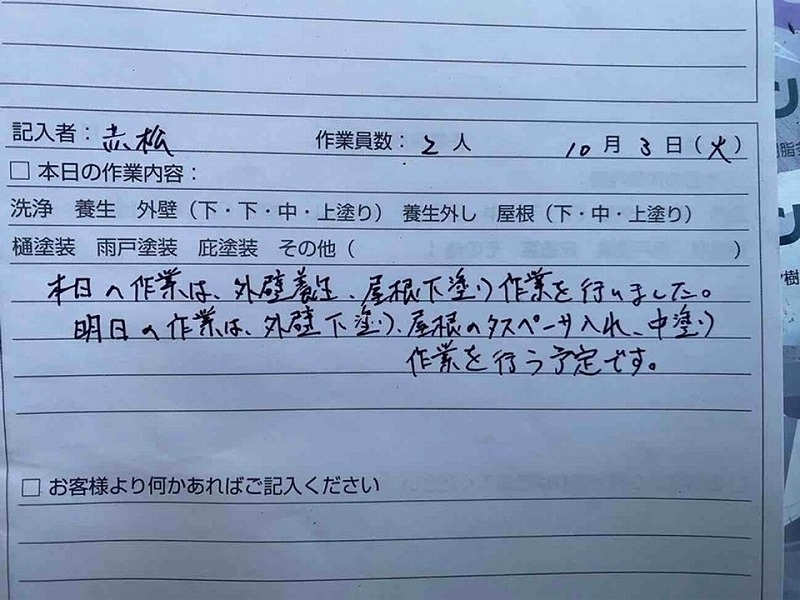 記入者：赤松 作業員数：2人 10月3日（火）
□ 本日の作業内容：
洗浄 養生 外壁（下・下・中・上塗り） 養生外し 屋根（下・中・上塗り）
樋塗装 雨戸塗装 庇塗装 その他（ ）
本日の作業は、外壁養生、屋根下塗り作業を行いました。
明日の作業は、外壁下塗り、屋根のタスペーサ入れ、中塗り
作業を行う予定です。
□ お客様より何かあればご記入ください